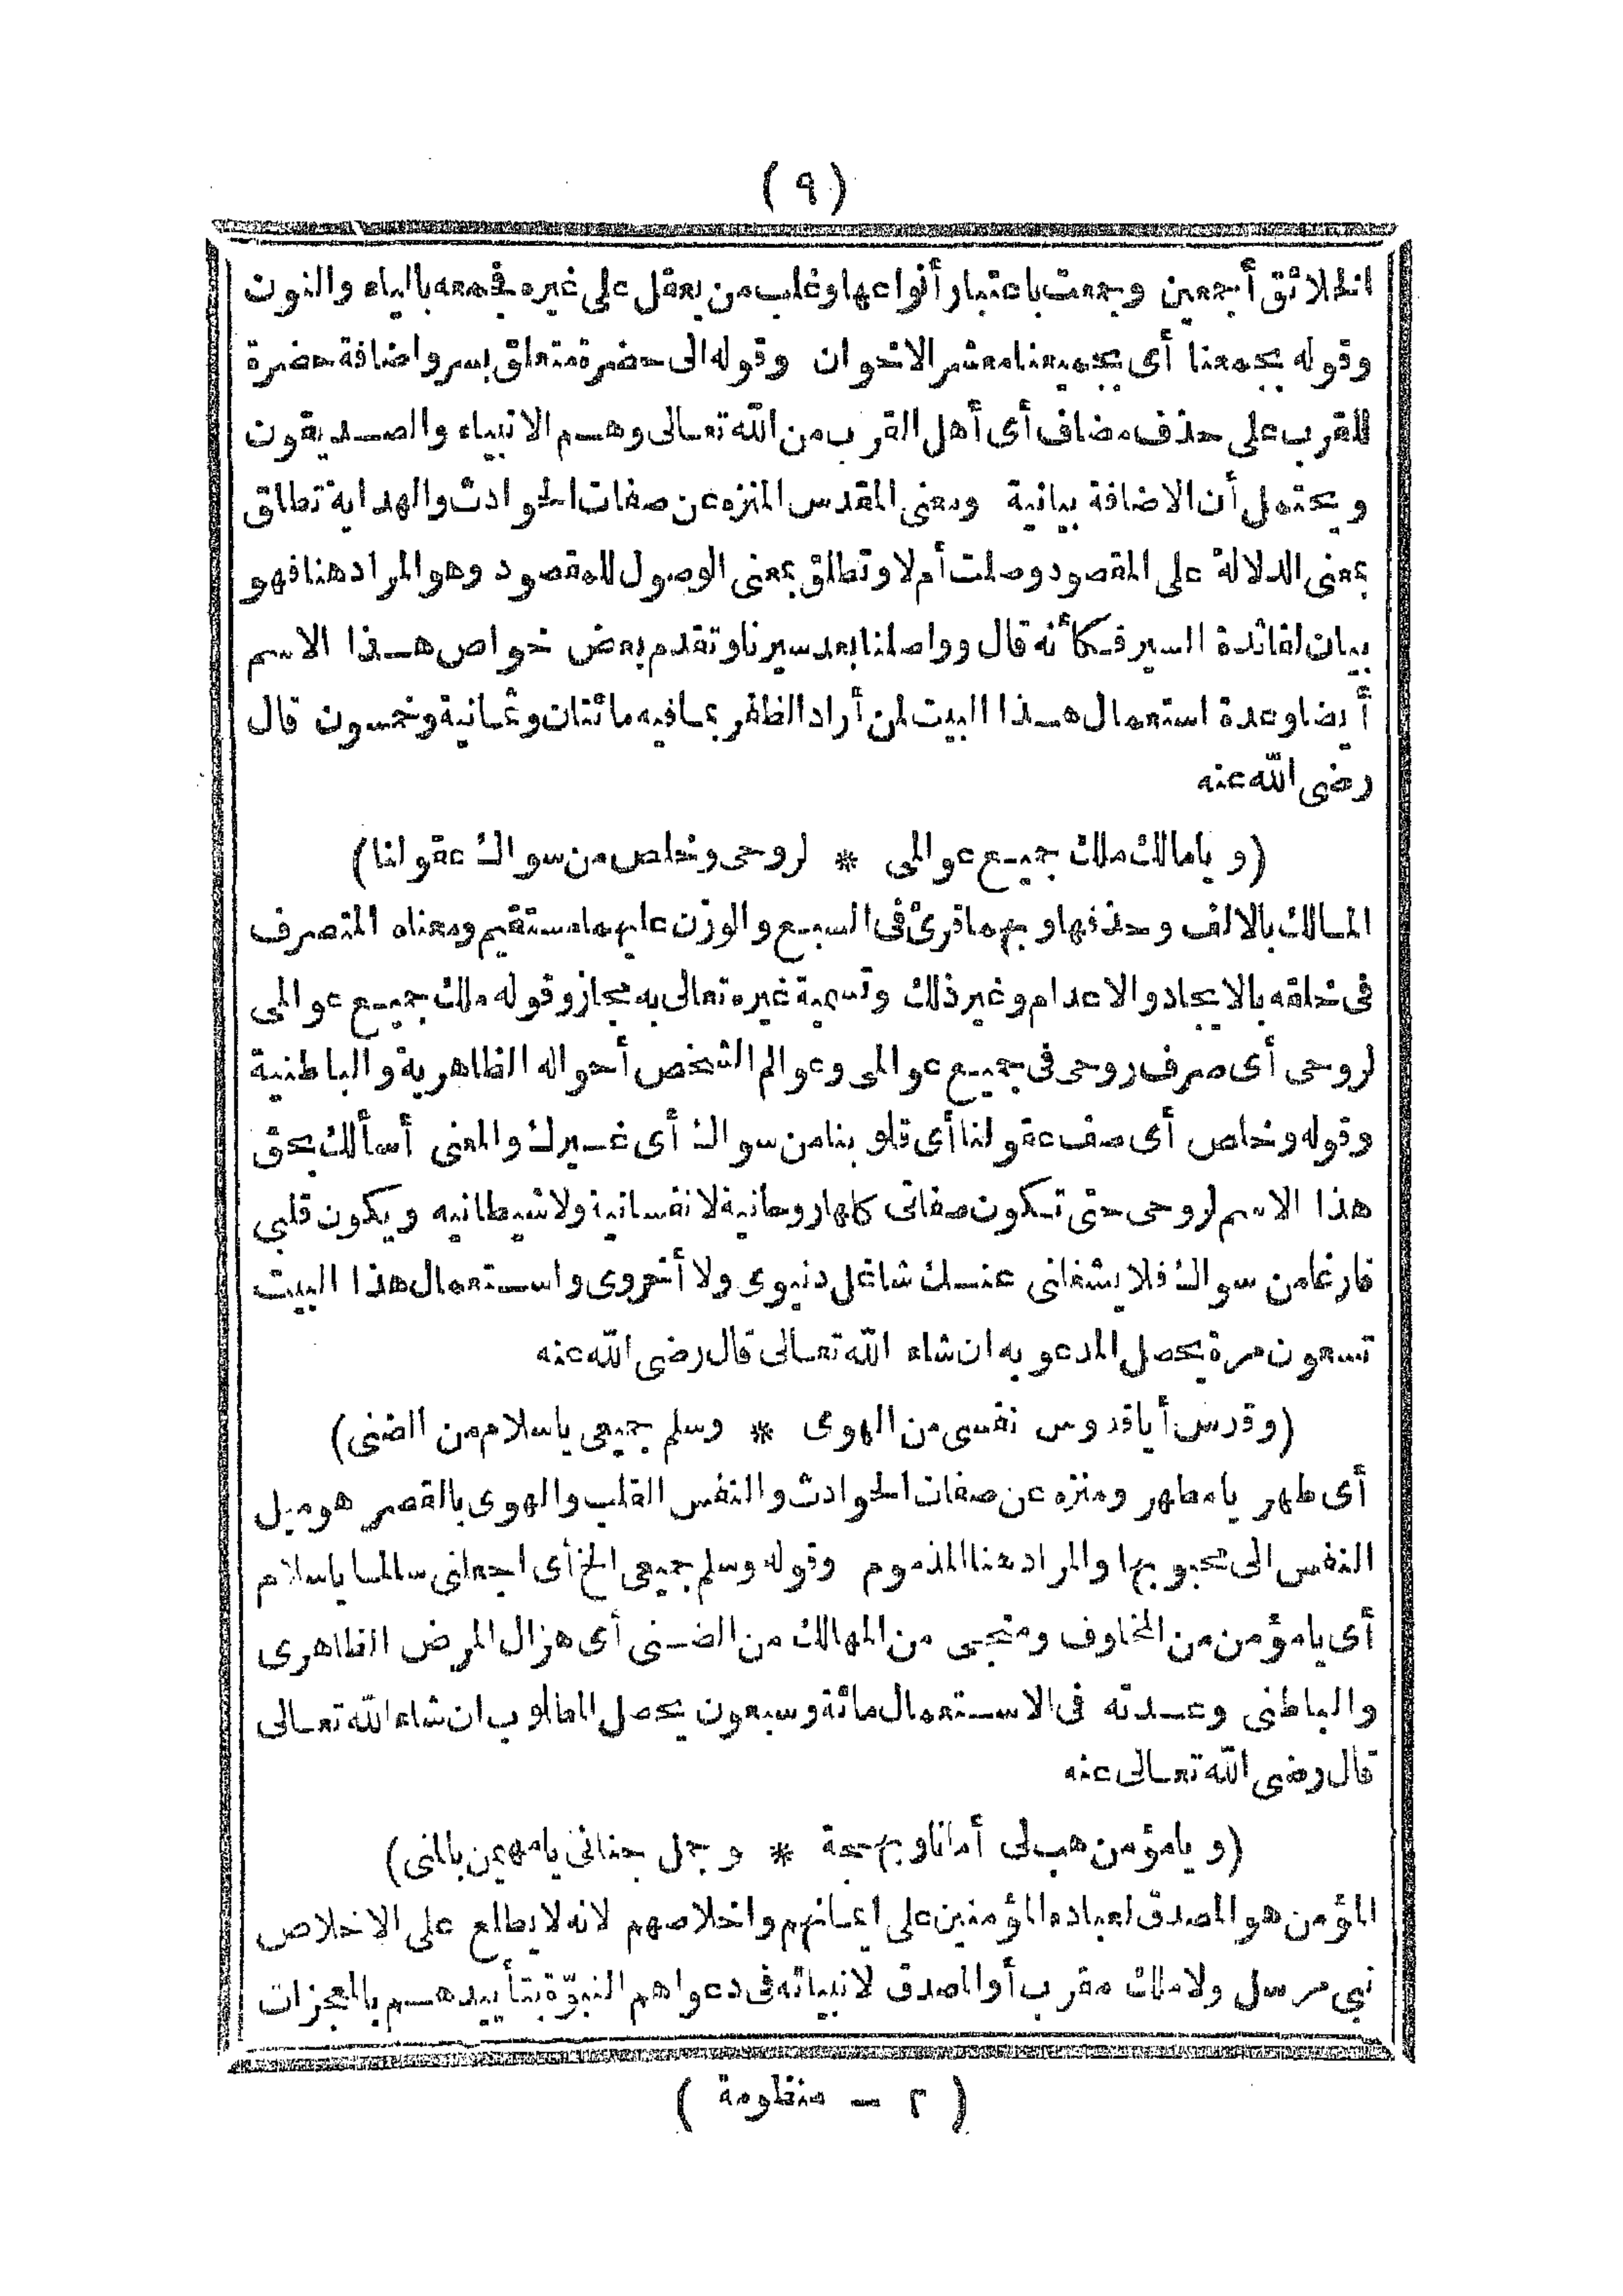 (٩)
الخلائق أجمعين وجمعت باعتبار أنواعها وغلب من يعقل على غيره فجمعه بالياء والنون
وقوله بجمعنا أى بجميعنا معشر الاخوان وقوله الى حضرة متعلق بسر واضافة حضرة
للقرب على حذف مضاف أى أهل القرب من الله تعالى وهم الانبياء والصديقون
ويحتمل أن الاضافة بيانية ومعنى المقدس المنزه عن صفات الحوادث والهداية تطلق
بمعنى الدلالة على المقصود وصلت أم لا وتطلق بمعنى الوصول للمقصود وهو المراد هنا فهو
بيان لفائدة السير فكأنه قال وواصلنا بعد سيرنا وتقدم بعض خواص هذا الاسم
أيضا وعدة استعمال هذا البيت لمن أراد الظفر بما فيه مائتان وثمانية وخمسون قال
رضى الله عنه
(ويامالك ملك جميع عوالمى * لروحى وخلص من سواك عقولنا)
المالك بالالف وحذفها وبهما قرئ فى السبع والوزن عليهما مستقيم ومعناه المتصرف
فى خلقه بالايجاد والاعدام وغير ذلك وتسمية غيره تعالى به مجاز وقوله ملك جميع عوالمى
لروحى أى صرف روحى فى جميع عوالمى وعوالم الشخص أحواله الظاهرية والباطنية
وقوله وخلص أى صف عقولنا أى قلوبنا من سواك أى غيرك والمعنى أسألك بحق
هذا الاسم لروحى حتى تكون صفاتى كلها روحانية لا نفسانية ولا شيطانيه ويكون قلبى
فارغا من سواك فلا يشغلنى عنك شاغل دنيوى ولا أخروى واستعمال هذا البيت
تسعون مرة يحصل المدعو به ان شاء الله تعالى قال رضى الله عنه
(وقدس أيا قدوس نفسى من الهوى * وسلم جميعى ياسلام من الضنى)
أى طهر يا مطهر ومنزه عن صفات الحوادث والنفس القلب والهوى بالقصر هو ميل
النفس الى محبوبها والمراد هنا المذموم وقوله وسلم جميعى الخ أى اجعلنى سالما ياسلام
أى يا مؤمن من المخاوف ومنجى من المهالك من الضنى أى هزال المرض الظاهرى
والباطنى وعدته فى الاستعمال مائة وسبعون يحصل المطلوب ان شاء الله تعالى
قال رضى الله تعالى عنه
(ويامؤمن هب لى أمانا وبهجة * وجمل جنانى يامهيمن بالمنى)
المؤمن هو المصدق لعباده المؤمنين على ايمانهم واخلاصهم لانه لا يطلع على الاخلاص
نبى مرسل ولا ملك مقرب أو المصدق لانبيائه فى دعواهم النبوّة بتأييدهم بالمعجزات
(٢ — منظومة)